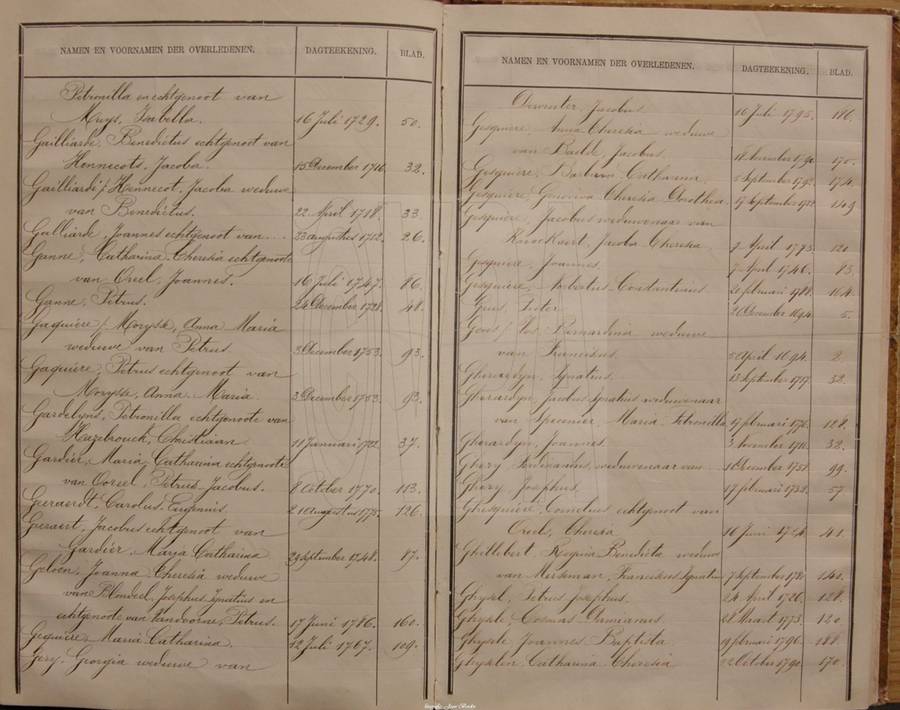 NAMEN EN VOORNAMEN DER OVERLEDENEN. DAGTEEKENING. BLAD.
Petronilla en echtgenoot van
Muys, Isabella. 16 Juli 1729. 50.
Gailliarde, Benedictus echtgenoot van
Hennecots, Jacoba. 15 December 1716. 32.
Gailliarde / Hennecot, Jacoba weduwe
van Benedictus. 22 April 1718. 33
Galliarde, Joannes echtgenoot van 23 augustus 1712. 26.
Ganne, Catharina Theresia echtgenoote
van Oreel, Joannes. 16 Juli 1747. 86.
Ganne, Petrus. 24 December 1728. 48.
Gaquière / Morysse, Anna Maria
weduwe van Petrus. 3 December 1753. 93.
Gaquière, Petrus echtgenoot van
Morysse, Anna Maria 3 December 1753. 93.
Gardelyns, Petronilla echtgenoote van
Hazebrouck, Christiaan 11 Januari 1722 37.
Gardier, Maria Catharina echtgenoote
van Oorsel, Petrus Jacobus. 8 October 1770. 113.
Geeraerdt, Carolus Eugenius. 21 Augustus 1775. 126.
Geraert, Jacobus echtgenoot van
Gardier, Maria Catharina 29 september 1748. 87.
Geloen, Joanna Theresia weduwe
van Blondeel, Josephus Ignatius en
echtgenoote van Vandoorne, Petrus. 17 Juni 1786. 160.
Gequière, Maria Catharina. 12 Juli 1767. 109.
Gery, Georgia weduwe van
NAMEN EN VOORNAMEN DER OVERLEDENEN. DAGTEEKENING. BLAD.
Dewinter, Jacobus 16 Juli 1795. 186.
Gesquière, Anna Theresia weduwe
van Jacobus. 170.
Gesquière, Barbara Catharina 5 September 1792. 174.
Gesquière, Genoveva Theresia Dorothea 19 September 1782 149
Gesquière, Jacobus weduwenaar van
Knockaert, Jacoba Theresia 7 April 1773. 120
Gesquière, Joannes. 7 April 1746. 83.
Gesquière, Norbertus Constantinus 20 februari 1788. 164.
Pieter 26 December 1694. 5.
Bernardina weduwe
van Franciscus. 5 April 1694. 2.
Gherardyn, Ignatius. 13 September 1717. 32.
Gherardyn, Jacobus Ignatius weduwenaar
van Spicenier, Maria Petronilla 19 februari 1776. 128.
Gherardyn, Joannes. 3 November 1716. 32.
Ghery, Ferdinandus weduwenaar van 1 December 1758. 99.
Ghery, Josephus 17 februari 1732. 57
Ghesquière, Cornelius echtgenoot van
Oreel, Theresia 16 Juni 1724. 41.
Ghillebert, Regina Benedicta weduwe
van Merkman, Franciscus Ignatius 7 September 1781 140.
Ghysel, Petrus Josephus. 24 April 1776. 128.
Ghysele, Cosmas Damianus. 28 Maart 1773. 120
Ghysele, Joannes Baptista 19 februari 1796. 188.
Ghyselen, Catharina Theresia October 1790. 170.